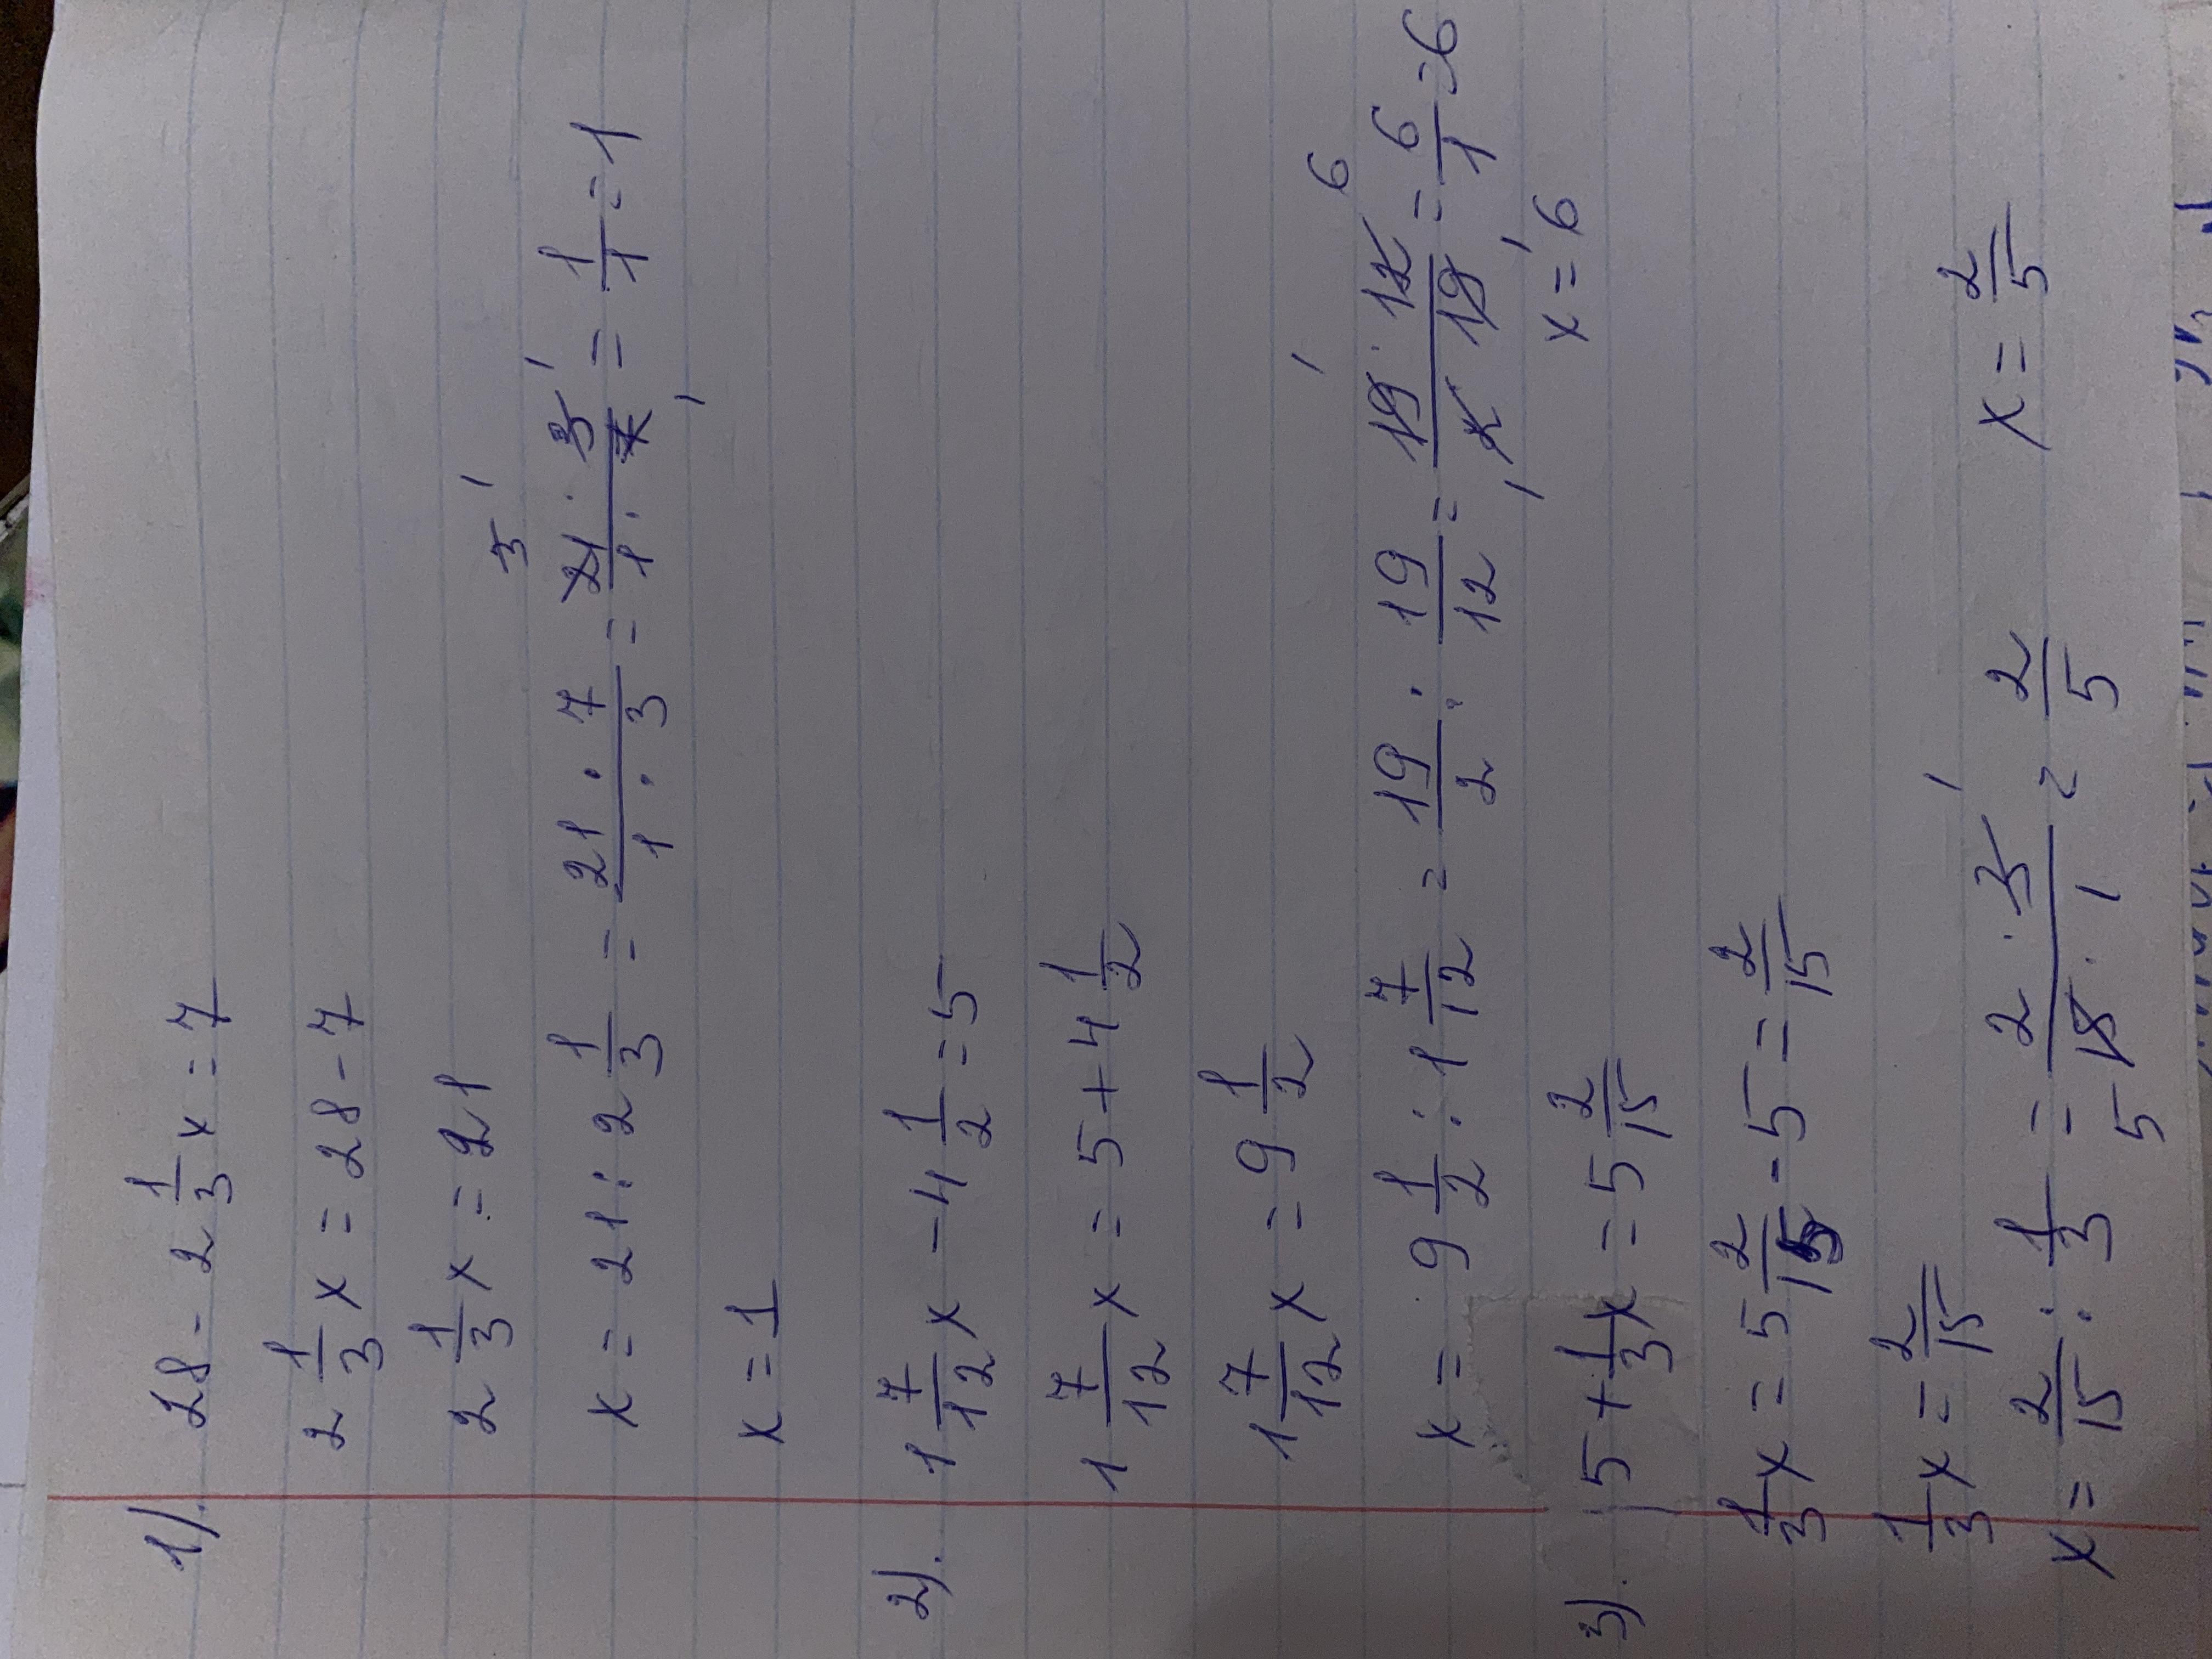 1). 28 - 2 1/3 x = 7
2 1/3 x = 28 - 7
2 1/3 x = 21
x = 21 : 2 1/3 = 21 · 7 / 1 · 3 = 21 · 3 / 1 · 7 = 1/1 = 1
x = 1
2). 1 7/12 x - 4 1/2 = 5
1 7/12 x = 5 + 4 1/2
1 7/12 x = 9 1/2
x = 9 1/2 : 1 7/12 = 19/2 : 19/12 = 19 · 12 / 2 · 19 = 6/1 = 6
x = 6
3). 5 + 1/3 x = 5 2/15
1/3 x = 5 2/15 - 5 = 2/15
1/3 x = 2/15
x = 2/15 : 1/3 = 2 · 3 / 15 · 1 = 2/5
x = 2/5